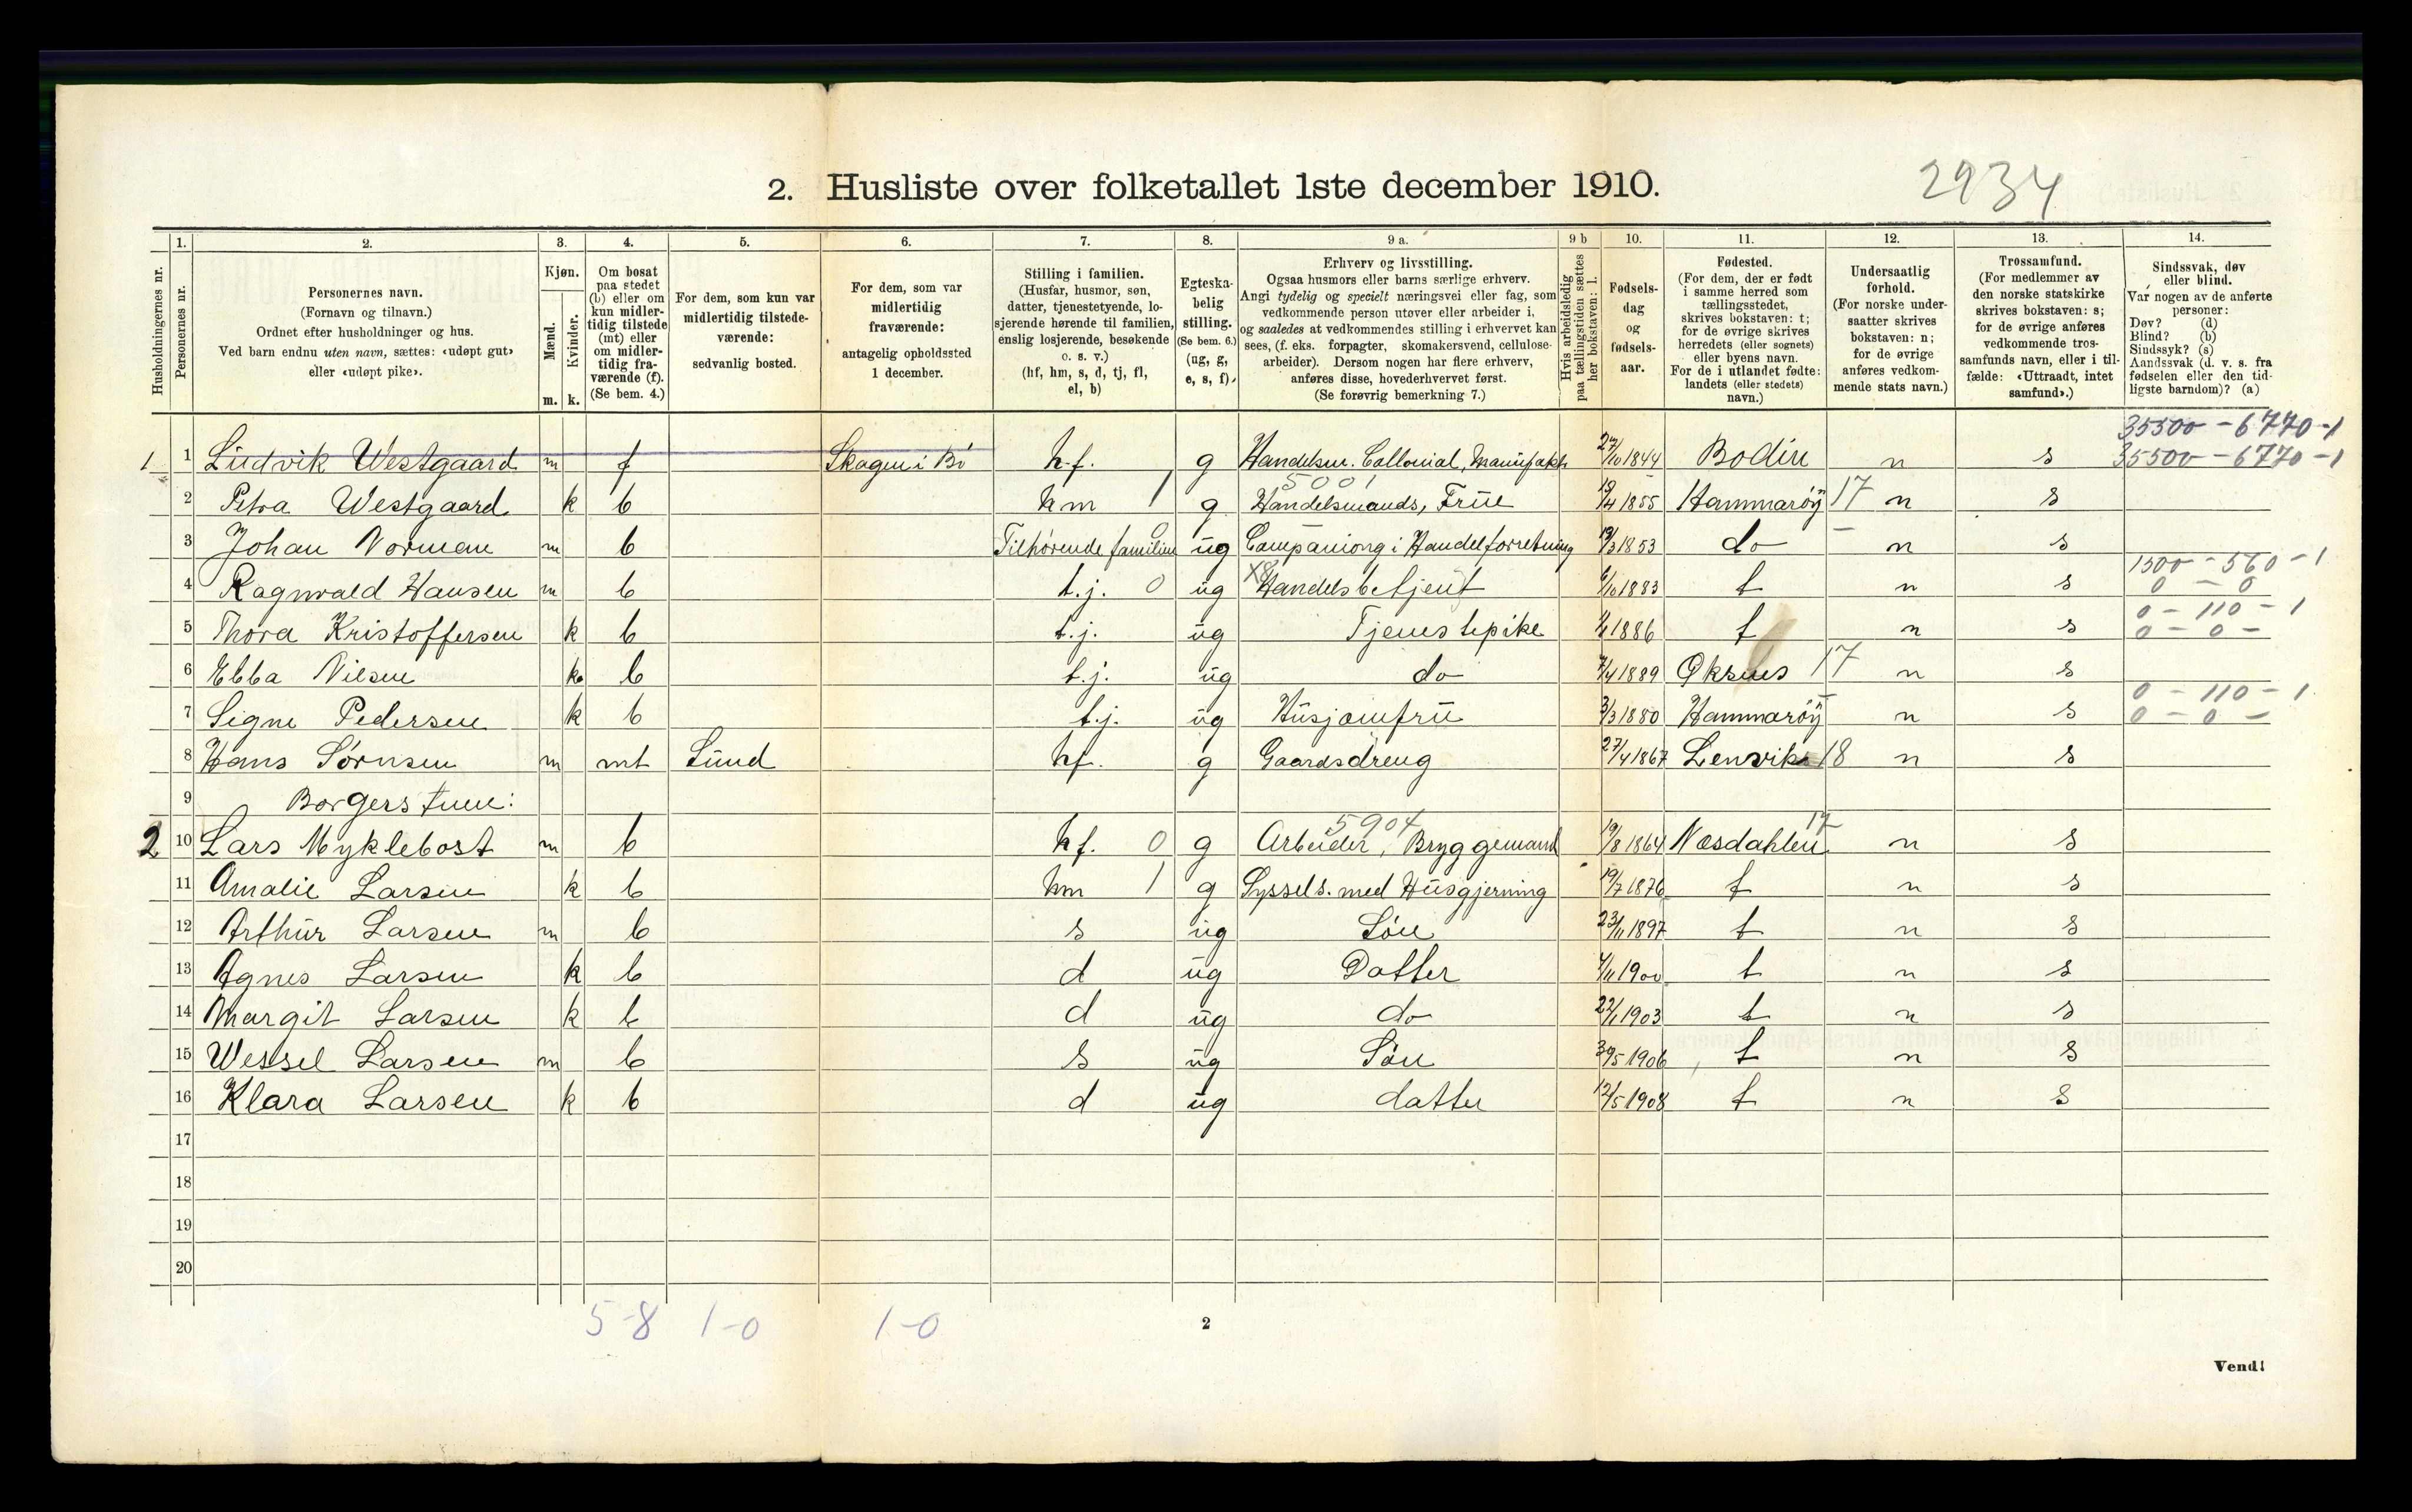 2. Husliste over folketallet 1ste december 1910.
2934
Husholdningernes nr.
1.
Personernes nr.
2.
Personernes navn.
(Fornavn og tilnavn.)
Ordnet efter husholdninger og hus.
Ved barn endnu uten navn, sættes: «udøpt gut»
eller «udøpt pike».
3.
Kjøn.
Mænd.
Kvinder.
m. k.
4.
Om bosat
paa stedet
(b) eller om
kun midler-
tidig tilstede
(mt) eller
om midler-
tidig fra-
værende (f).
(Se bem. 4.)
5.
For dem, som kun var
midlertidig tilstede-
værende:
sedvanlig bosted.
6.
For dem, som var
midlertidig
fraværende:
antagelig opholdssted
1 december.
7.
Stilling i familien.
(Husfar, husmor, søn,
datter, tjenestetyende, lo-
sjerende hørende til familien,
enslig losjerende, besøkende
o. s. v.)
(hf, hm, s, d, tj, fl,
el, b)
8.
Egteska-
belig
stilling.
(Se bem. 6.)
(ug, g,
e, s, f).
9 a.
Erhverv og livsstilling.
Ogsaa husmors eller barns særlige erhverv.
Angi tydelig og specielt næringsvei eller fag, som
vedkommende person utøver eller arbeider i,
og saaledes at vedkommendes stilling i erhvervet kan
sees, (f. eks. forpagter, skomakersvend, cellulose-
arbeider). Dersom nogen har flere erhverv,
anføres disse, hovederhvervet først.
(Se forøvrig bemerkning 7.)
9 b
Hvis arbeidsledig
paa tællingstiden sættes
her bokstaven: l.
10.
Fødsels-
dag
og
fødsels-
aar.
11.
Fødested.
(For dem, der er født
i samme herred som
tællingsstedet,
skrives bokstaven: t;
for de øvrige skrives
herredets (eller sognets)
eller byens navn.
For de i utlandet fødte:
landets (eller stedets)
navn.)
12.
Undersaatlig
forhold.
(For norske under-
saatter skrives
bokstaven: n;
for de øvrige
anføres vedkom-
mende stats navn.)
13.
Trossamfund.
(For medlemmer av
den norske statskirke
skrives bokstaven: s;
for de øvrige anføres
vedkommende tros-
samfunds navn, eller i til-
fælde: «Uttraadt, intet
samfund».)
14.
Sindssvak, døv
eller blind.
Var nogen av de anførte
personer:
Døv? (d)
Blind? (b)
Sindssyk? (s)
Aandssvak (d. v. s. fra
fødselen eller den tid-
ligste barndom)? (a)
35500 - 6770 - 1
1 1 Ludvik Westgaard m f Skagen i Bø hf. g Handelsm. Collonial, Manufakt 27/10 1844 Bodin n s 35500 - 6770 - 1
5001
2 Petra Westgaard k b hm 1 g Handelsmands, Frue 1855 Hammarøy 17 n s
3 Johan Norman m b Tilhørende familien 0 ug Companiong i Handelforretning 1853 do n s
1500 - 560 - 1
4 Ragnvald Hansen m b t.j. 0 ug X8 Handelsbetjent 6/10 1883 t n s 0 - 0
0 - 110 - 1
5 Thora Kristoffersen k b t.j. ug Tjenestepike 1886 t n s 0 - 0 -
6 Ebba Nilsen k b t.j. ug do 7/4 1889 Øksnes 17 n s
0 - 110 - 1
7 Signe Pedersen k b t.j. ug Husjomfru 3/3 1880 Hammarøy n s 0 - 0 -
8 Hans Sørnsen m mt Sund hf. g Gaardsdreng 27/4 1867 Lenvik 18 n s
9 Borgerstuen:
5904 17
2 10 Lars Myklebost m b hf. 0 g Arbeider, Bryggemand 19/8 1864 Næsdahlen n s
11 Amalie Larsen k b hm 1 g Syssels. med Husgjerning 19/7 1876 t n s
12 Arthur Larsen m b s ug Søn 23/11 1897 t n s
13 Agnes Larsen k b d ug Datter 1900 t n s
14 Margit Larsen k b d ug do 22/1 1903 t n s
15 Wessel Larsen m b s ug Søn 30/5 1906 t n s
16 Klara Larsen k b d ug datter 12/5 1908 t n s
17
18
19
20
5-8 1-0 1-0
2
Vend!